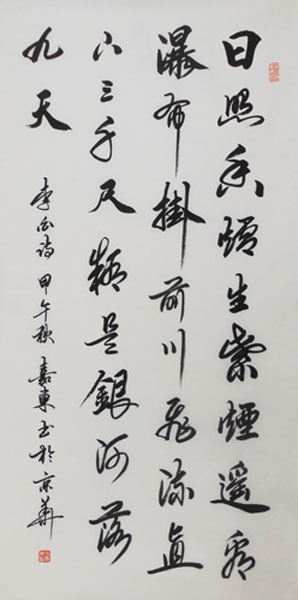 日照香爐生紫煙遙看
瀑布掛前川飛流直
下三千尺疑是銀河落
九天
李白詩甲午秋嘉東书於京華